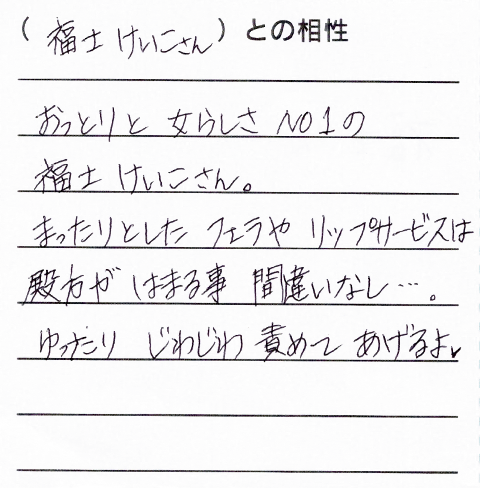 （福士 けいこさん）との相性
おっとりと 女らしさ NO1の
福士 けいこさん。
まったりとした フェラや リップサービスは
殿方が はまる事 間違いなし…。
ゆったり じわじわ 責めて あげるよ♥